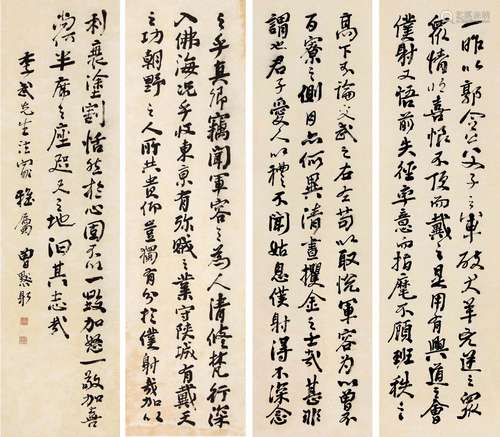 一昨以郭令公父子之軍破犬羊兇逆之眾
眾情欣喜恨不頂而戴之是用有興道之會
僕射又悟前失徑率意而指麾不顧班秩之
高下不論文武之右左苟以取悅軍容為心曾不
百寮之側目亦何異清晝攫金之士哉甚非
謂也君子愛人以禮不聞姑息僕射得不深念
之乎真卿竊聞軍容之為人清修梵行深
入佛海況乎收東京有殄賊之業守陝城有戴天
之功朝野之人所共貴仰豈獨有分於僕射哉加以
利衰塗割恬然於心固不以一毀加怒一敬加喜
尚何半席之座咫尺之地汩其志哉
季武先生法家雅屬 曾默躬